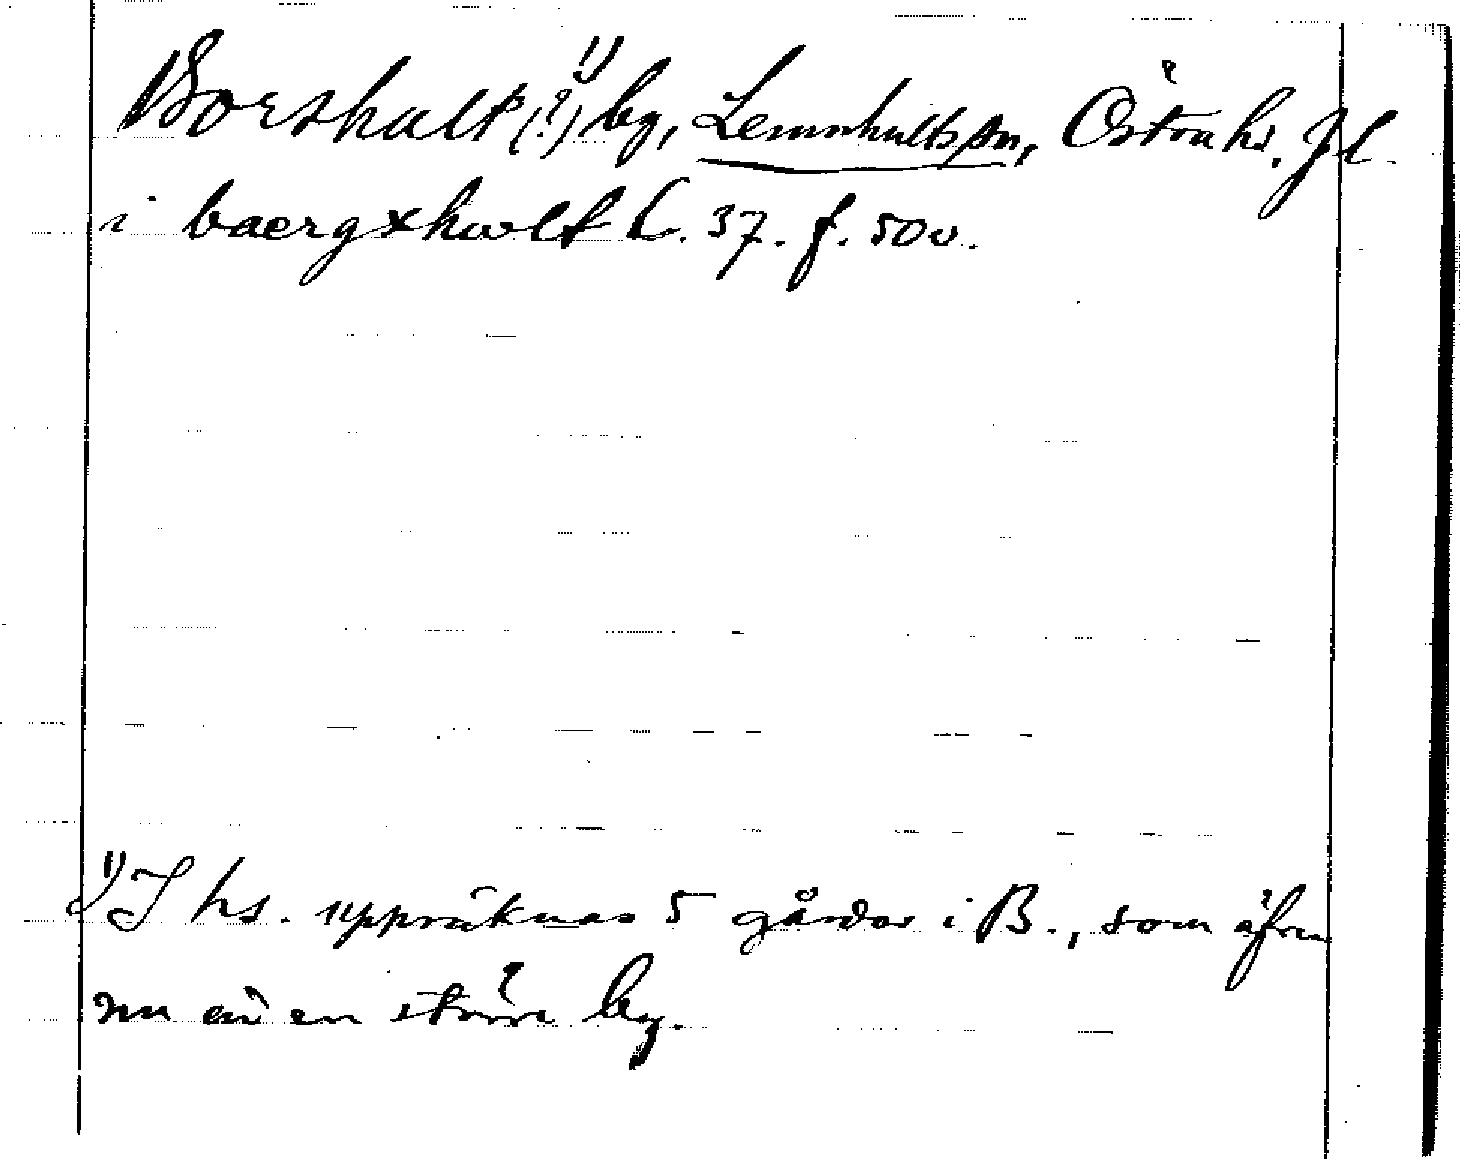 Borshult (?) 1) by, Lemnhults sn, Östra hd. Jl.
i baergxhwlt C. 37. f. 50 v.
1) I hs. uppräknas 5 gårdar i B., som äfven
nu är en större by.